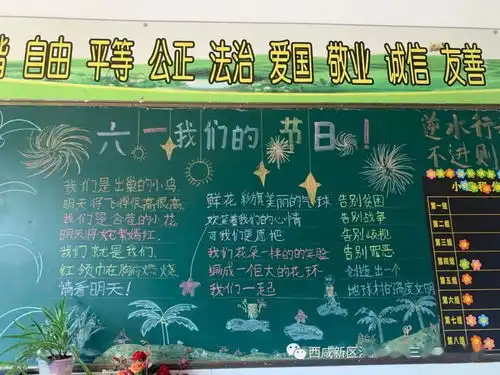 谐 自由 平等 公正 法治 爱国 敬业 诚信 友善
六一我们的节日！
我们是出巢的小鸟
明天将飞得很高很高
我们是含苞的小花
明天将姹紫嫣红
我们就是我们
红领巾在胸前燃烧
情着明天！
鲜花 彩旗美丽的气球
欢笑着我们的心情
可我们更愿把
我们花朵一样的的笑脸
编成一个巨大的花环
我们一起
告别贫困
告别战争
告别歧视
告别罪恶
创造出一个
地球村的高度文明
逆水行
不进则
第一组
第二组
第三组
第四组
第五组
第六组
第七组
第八组
西咸新区